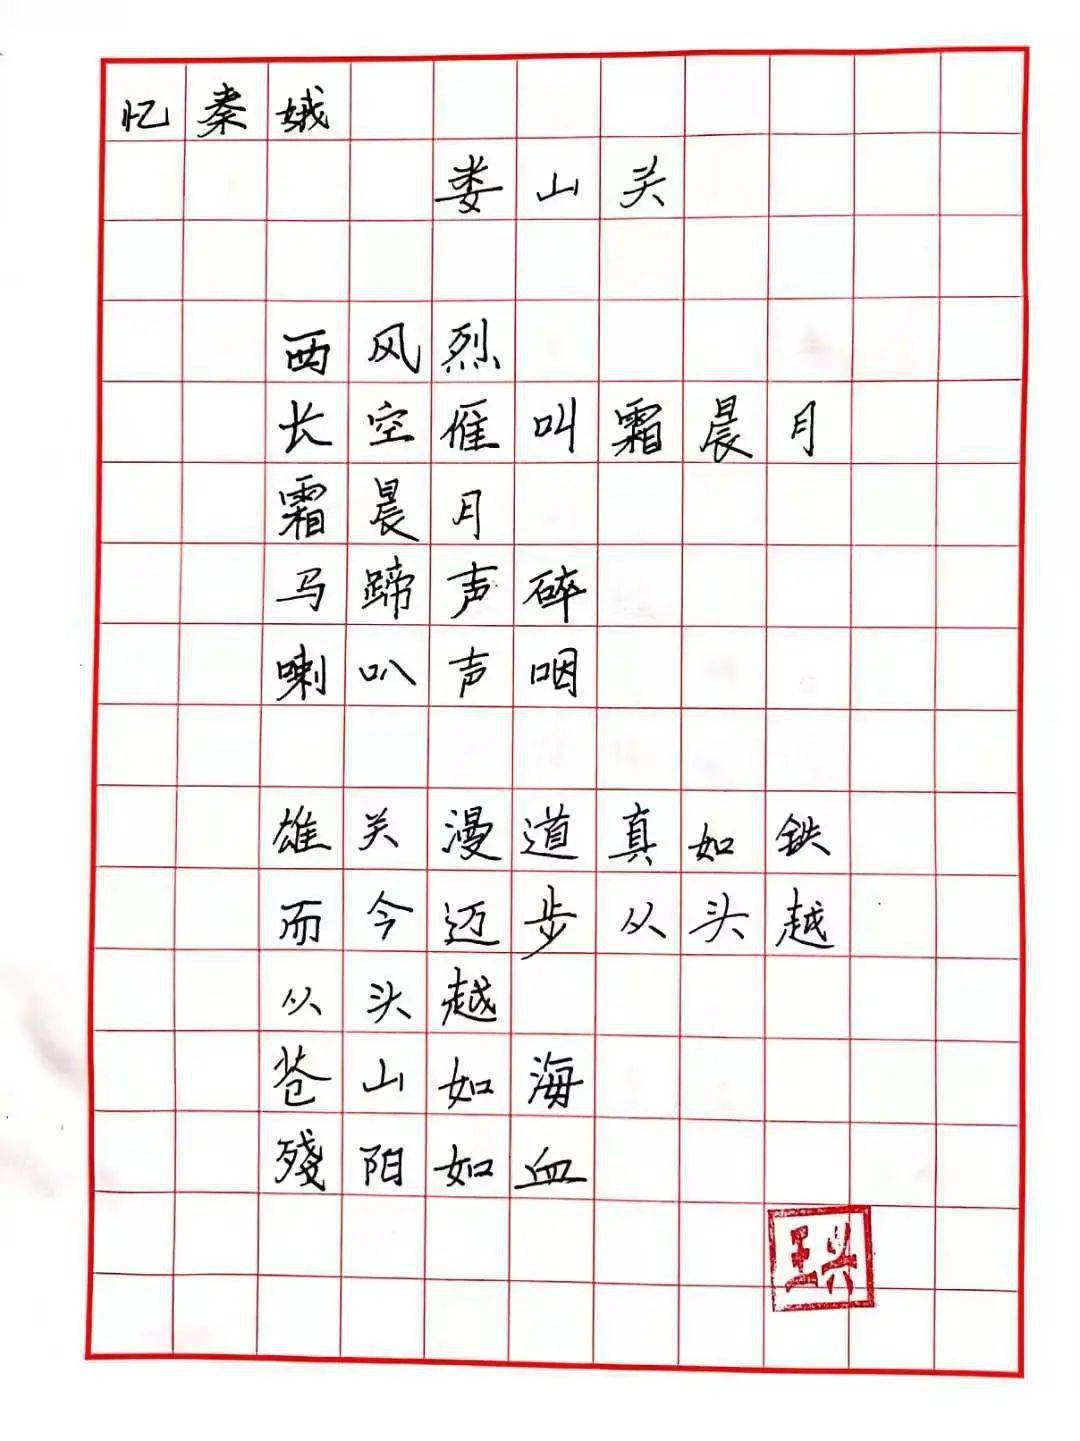 忆秦娥
娄山关
西风烈
长空雁叫霜晨月
霜晨月
马蹄声碎
喇叭声咽
雄关漫道真如鉄
而今迈步从头越
从头越
苍山如海
殘阳如血
王兴